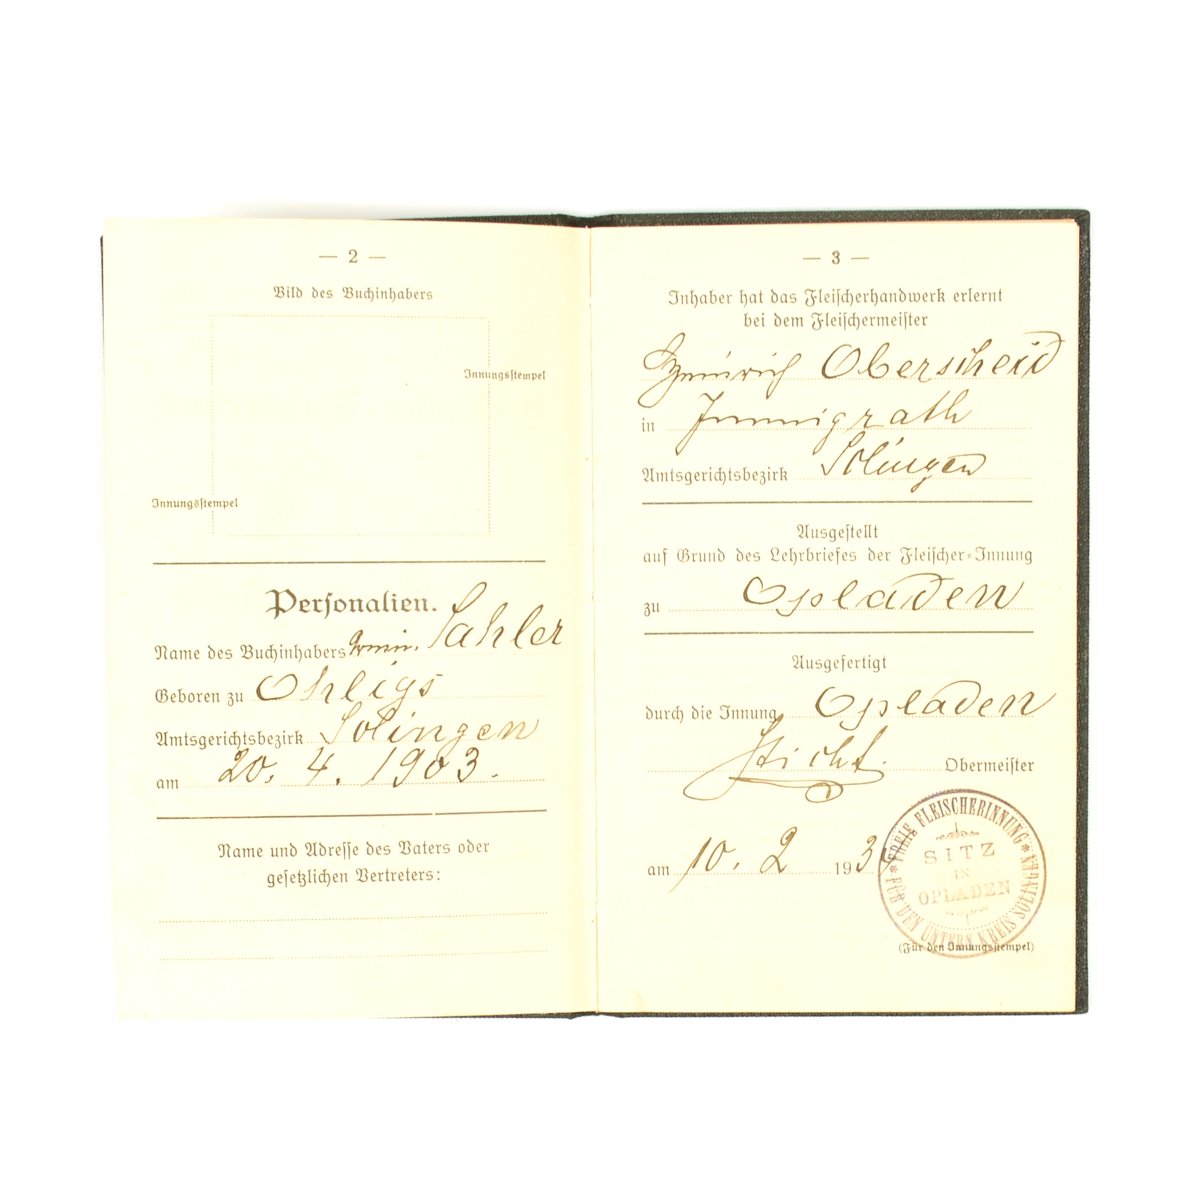 — 2 —
Bild des Buchinhabers
Innungsstempel
Innungsstempel
Personalien.
Name des Buchinhabers Armin. Sahler
Geboren zu Ohligs
Amtsgerichtsbezirk Solingen
am 20. 4. 1903.
Name und Adresse des Vaters oder
gesetzlichen Vertreters:
— 3 —
Inhaber hat das Fleischerhandwerk erlernt
bei dem Fleischermeister
Heinrich Oberscheid
in Immigrath
Amtsgerichtsbezirk Solingen
Ausgestellt
auf Grund des Lehrbriefes der Fleischer-Innung
zu Opladen
Ausgefertigt
durch die Innung Opladen
Obermeister
am 10. 2 193
FREIE FLEISCHERINNUNG
FÜR DEN UNTERN KREIS SOLINGEN
SITZ
IN
OPLADEN
(Für den Innungsstempel)